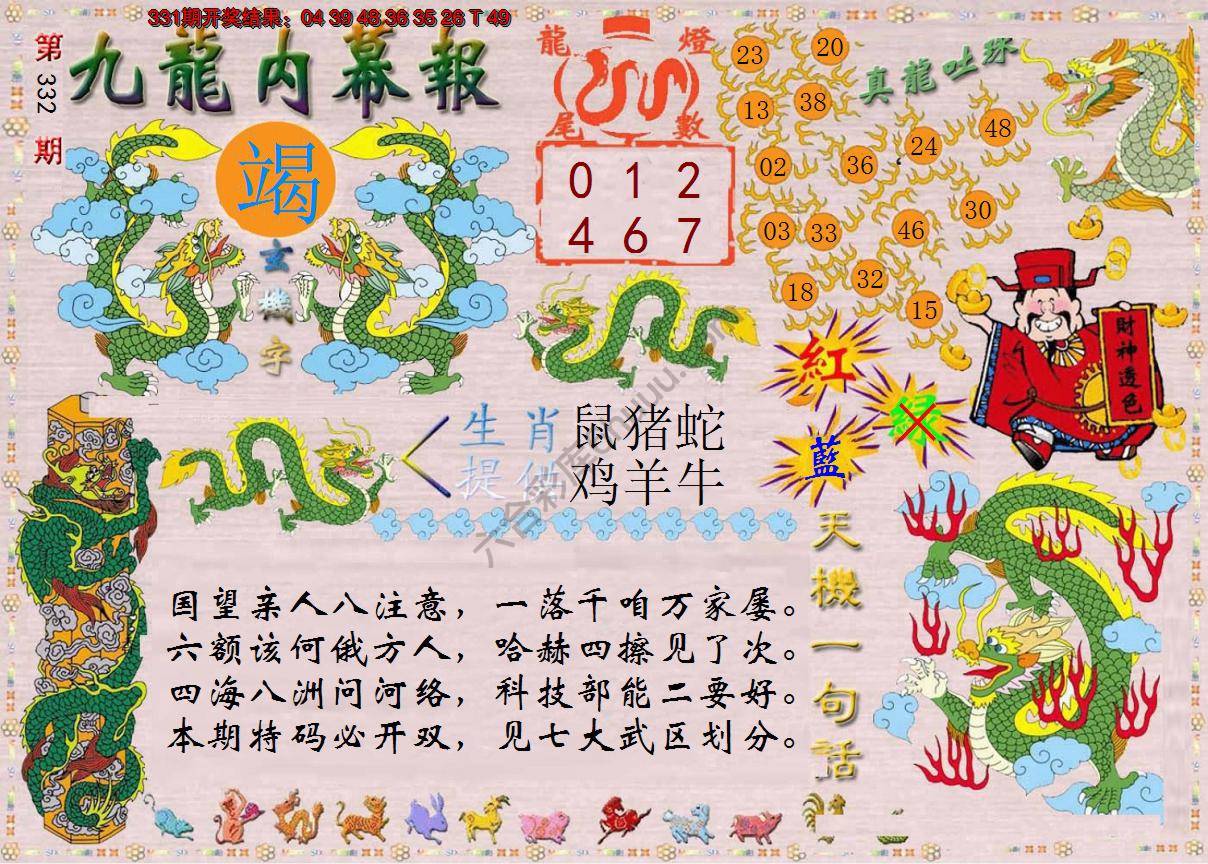 331期开奖结果：04 39 48 36 35 26 T 49
第332期
九龍内幕報
竭
玄機字
龍燈尾數
0 1 2
4 6 7
真龍吐珠
23 20
13 38
02 36 24 48
03 33 46 30
18 32 15
財神透色
紅
绿
藍
生肖 鼠猪蛇
提供 鸡羊牛
天機一句話
国望亲人八注意，一落千咱万家屡。
六额该何俄方人，哈赫四擦见了次。
四海八洲问河络，科技部能二要好。
本期特码必开双，见七大武区划分。